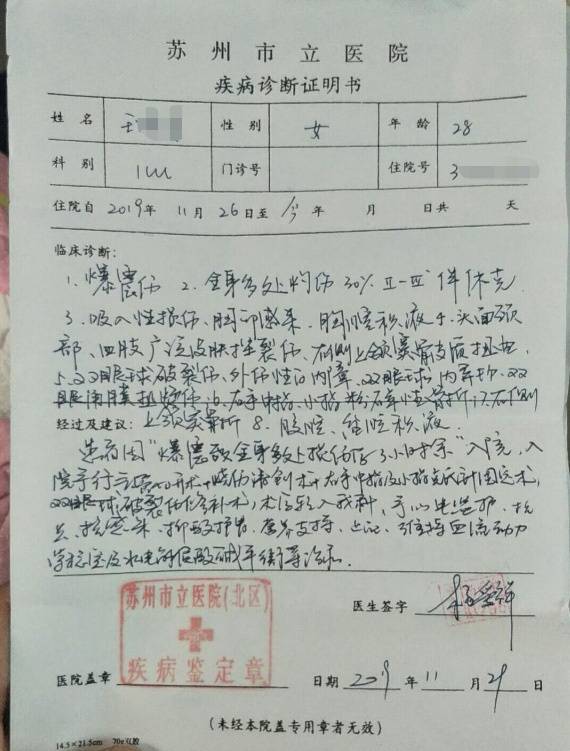 苏州市立医院
疾病诊断证明书
姓名 王 性别 女 年龄 28
科别 ICU 门诊号 住院号 3
住院自 2019年 11月 26日至 今 年 月 日共 天
临床诊断:
1. 爆震伤 2. 全身多处灼伤 30% Ⅱ-Ⅲ° 伴休克
3. 吸入性损伤、肺部感染、胸腔积液 4. 头面颈
部、四肢广泛皮肤挫裂伤、右侧上颌窦
5. 双眼球破裂伤、外伤性白内障、双眼球内异物、双
眼 6. 右手中指、小指粉碎性骨折 7. 右侧
经过及建议: 上颌窦骨折 8. 腹腔、盆腔积液.
患者因“爆震致全身多处损伤后3小时余”入院,入
院予行 切开术+烧伤清创术+右手中指及小指 固定术,
双眼球破裂伤修补术,术后转入我科,予心电监护、抗
炎、抗感染、 营养支持、 维持血流动力
学稳定及水电解质酸碱平衡等治疗.
苏州市立医院(北区)
疾病鉴定章
医生签字
医院盖章 日期 2019 年 11 月 29 日
(未经本院盖专用章者无效)
14.5×21.5cm 70g双胶